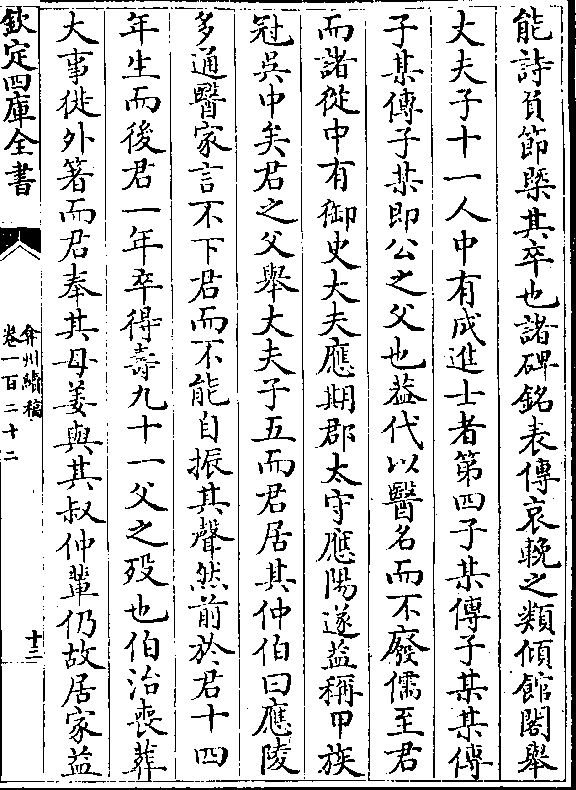 能詩負節槩其卒也諸碑銘表傳哀輓之類傾館閣舉
大夫子十一人中有成進士者第四子某傳子某某傳
子某傳子某即公之父也葢代以醫名而不廢儒至君
而諸從中有御史大夫應期郡太守應陽遂益稱甲族
冠吳中矣君之父舉大夫子五而君居其仲伯曰應陵
多通醫家言不下君而不能自振其聲然前於君十四
年生而後君一年卒得壽九十一父之殁也伯治喪葬
大事徙外著而君奉其母姜與其叔仲輩仍故居家益
欽定四庫全書
弇州續稿
卷一百二十二
十三